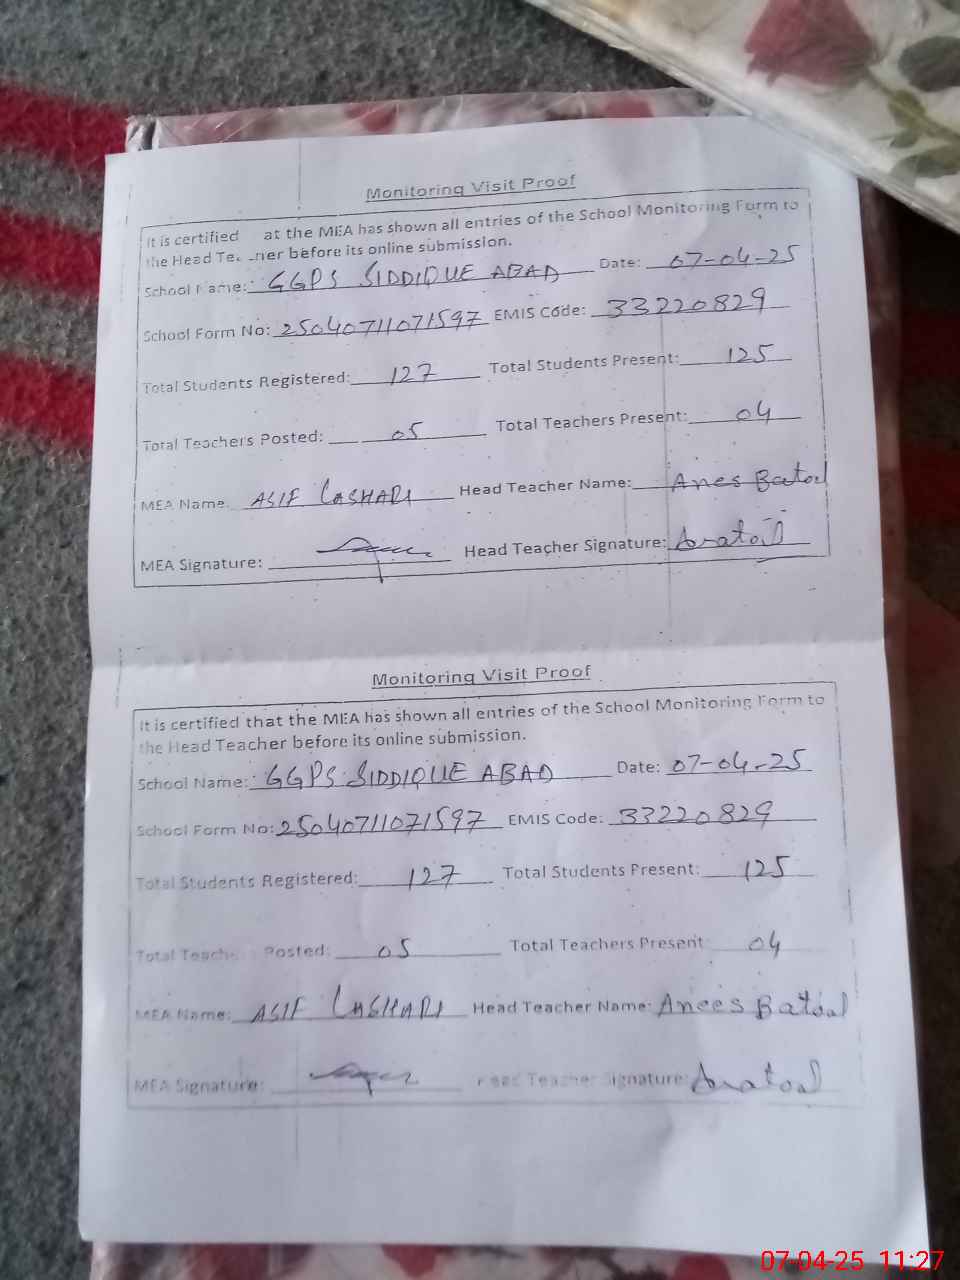 Monitoring Visit Proof
It is certified at the MEA has shown all entries of the School Monitoring Form to
the Head Te..ner before its online submission.
School Name: GGPS SIDDIQUE ABAD Date: 07-04-25
School Form No: 25040711071597 EMIS Code: 33220829
Total Students Registered: 127 Total Students Present: 125
Total Teachers Posted: 05 Total Teachers Present: 04
MEA Name: ASIF LASHARI Head Teacher Name: Anes Batool
MEA Signature: Head Teacher Signature:
Monitoring Visit Proof
It is certified that the MEA has shown all entries of the School Monitoring Form to
the Head Teacher before its online submission.
School Name: GGPS SIDDIQUE ABAD Date: 07-04-25
School Form No: 25040711071597 EMIS Code: 33220829
Total Students Registered: 127 Total Students Present: 125
Total Teachers Posted: 05 Total Teachers Present: 04
MEA Name: ASIF LASHARI Head Teacher Name: Anees Batool
MEA Signature: Head Teacher Signature:
07-04-25 11:27